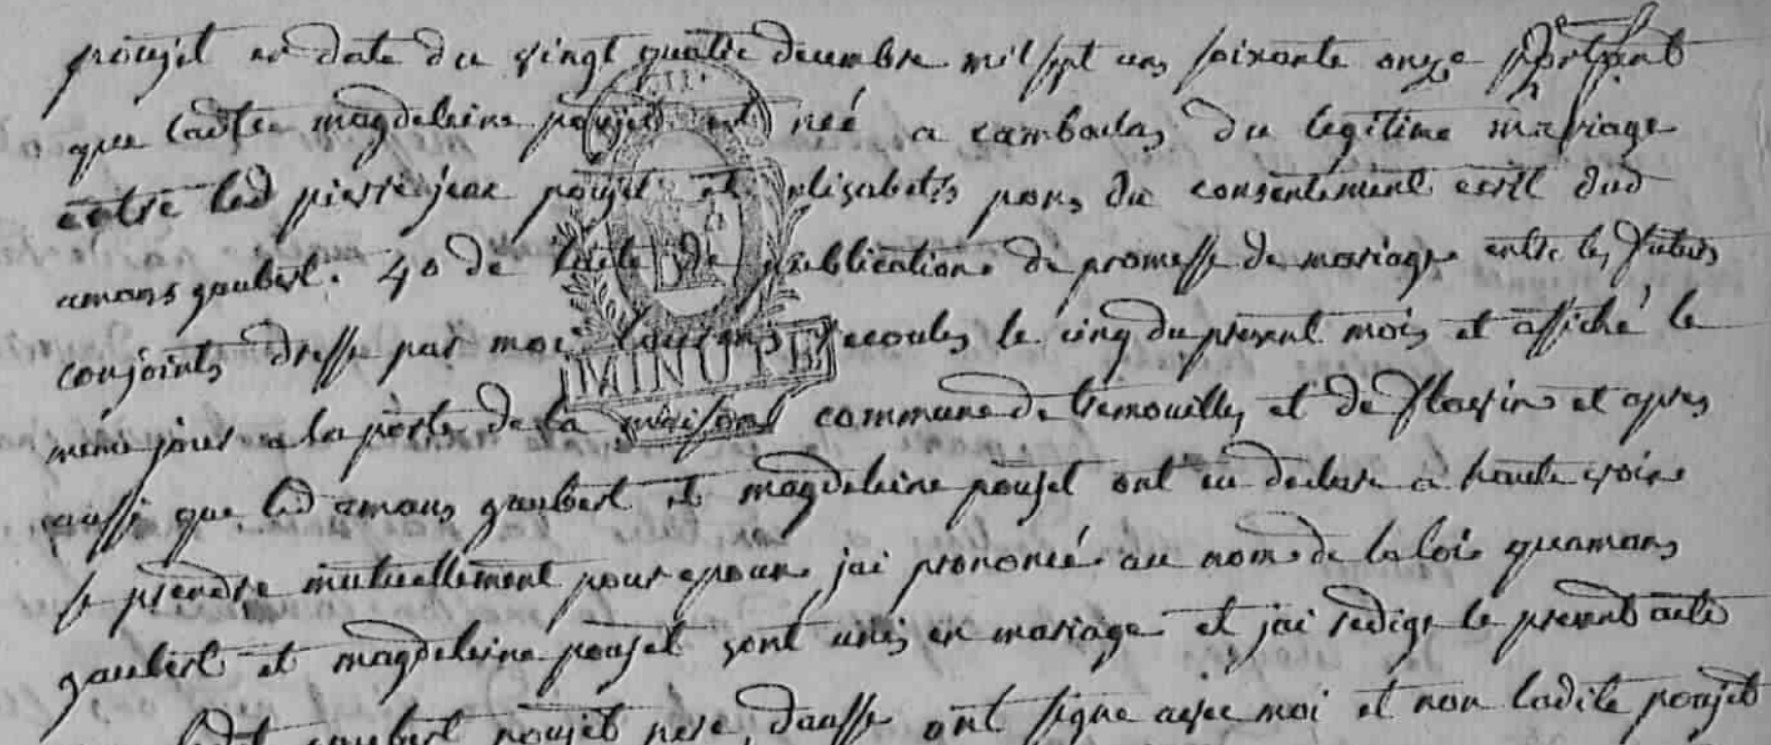 poujet en date du vingt quatre decembre mil sept cens soixante onze portant
que ladite magdeleine poujet est née a camboulas du legitime mariage
entre led pierre jean poujet et elisabeth pons du consentement ecrit dud
amans gaubert. 4o de lacte de publication de promesse de mariage entre les futurs
conjoints dressé par moi recoules le cinq du present mois et affiché le
même jour a la porte de la maison commune de tremouilles et de flavin et apres
aussi que led amans gaubert et magdeleine poujet ont eu declaré a haute voix
se prendre mutuellement pour epoux, jai prononcé au nom de la loi quamans
gaubert et magdeleine poujet sont unis en mariage et jai redigé le present acte
gaubert poujet pere, dausse ont signé avec moi et non ladite poujet
MINUTE